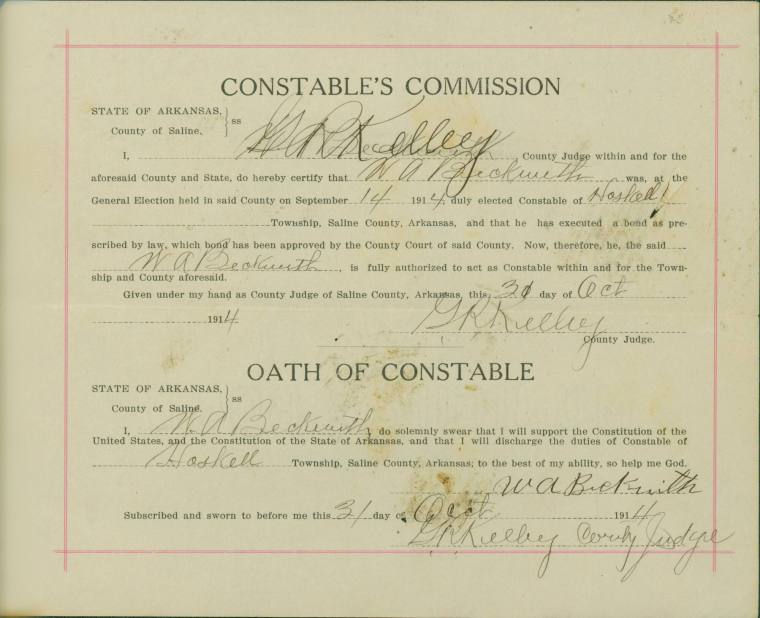 CONSTABLE'S COMMISSION
STATE OF ARKANSAS, } ss
County of Saline,
I, G R Kelley County Judge within and for the
aforesaid County and State, do hereby certify that W A Beckwith was, at the
General Election held in said County on September 14 1914, duly elected Constable of Hoskell
Township, Saline County, Arkansas, and that he has executed a bond as pre-
scribed by law, which bond has been approved by the County Court of said County. Now, therefore, he, the said
W A Beckwith, is fully authorized to act as Constable within and for the Town-
ship and County aforesaid.
Given under my hand as County Judge of Saline County, Arkansas, this 31 day of Oct
1914 G R Kelley
County Judge.
OATH OF CONSTABLE
STATE OF ARKANSAS, } ss
County of Saline.
I, W. A Beckwith, do solemnly swear that I will support the Constitution of the
United States, and the Constitution of the State of Arkansas, and that I will discharge the duties of Constable of
Hoskell Township, Saline County, Arkansas; to the best of my ability, so help me God.
W A Beckwith
Subscribed and sworn to before me this 31 day of Oct 1914
G R Kelley County Judge